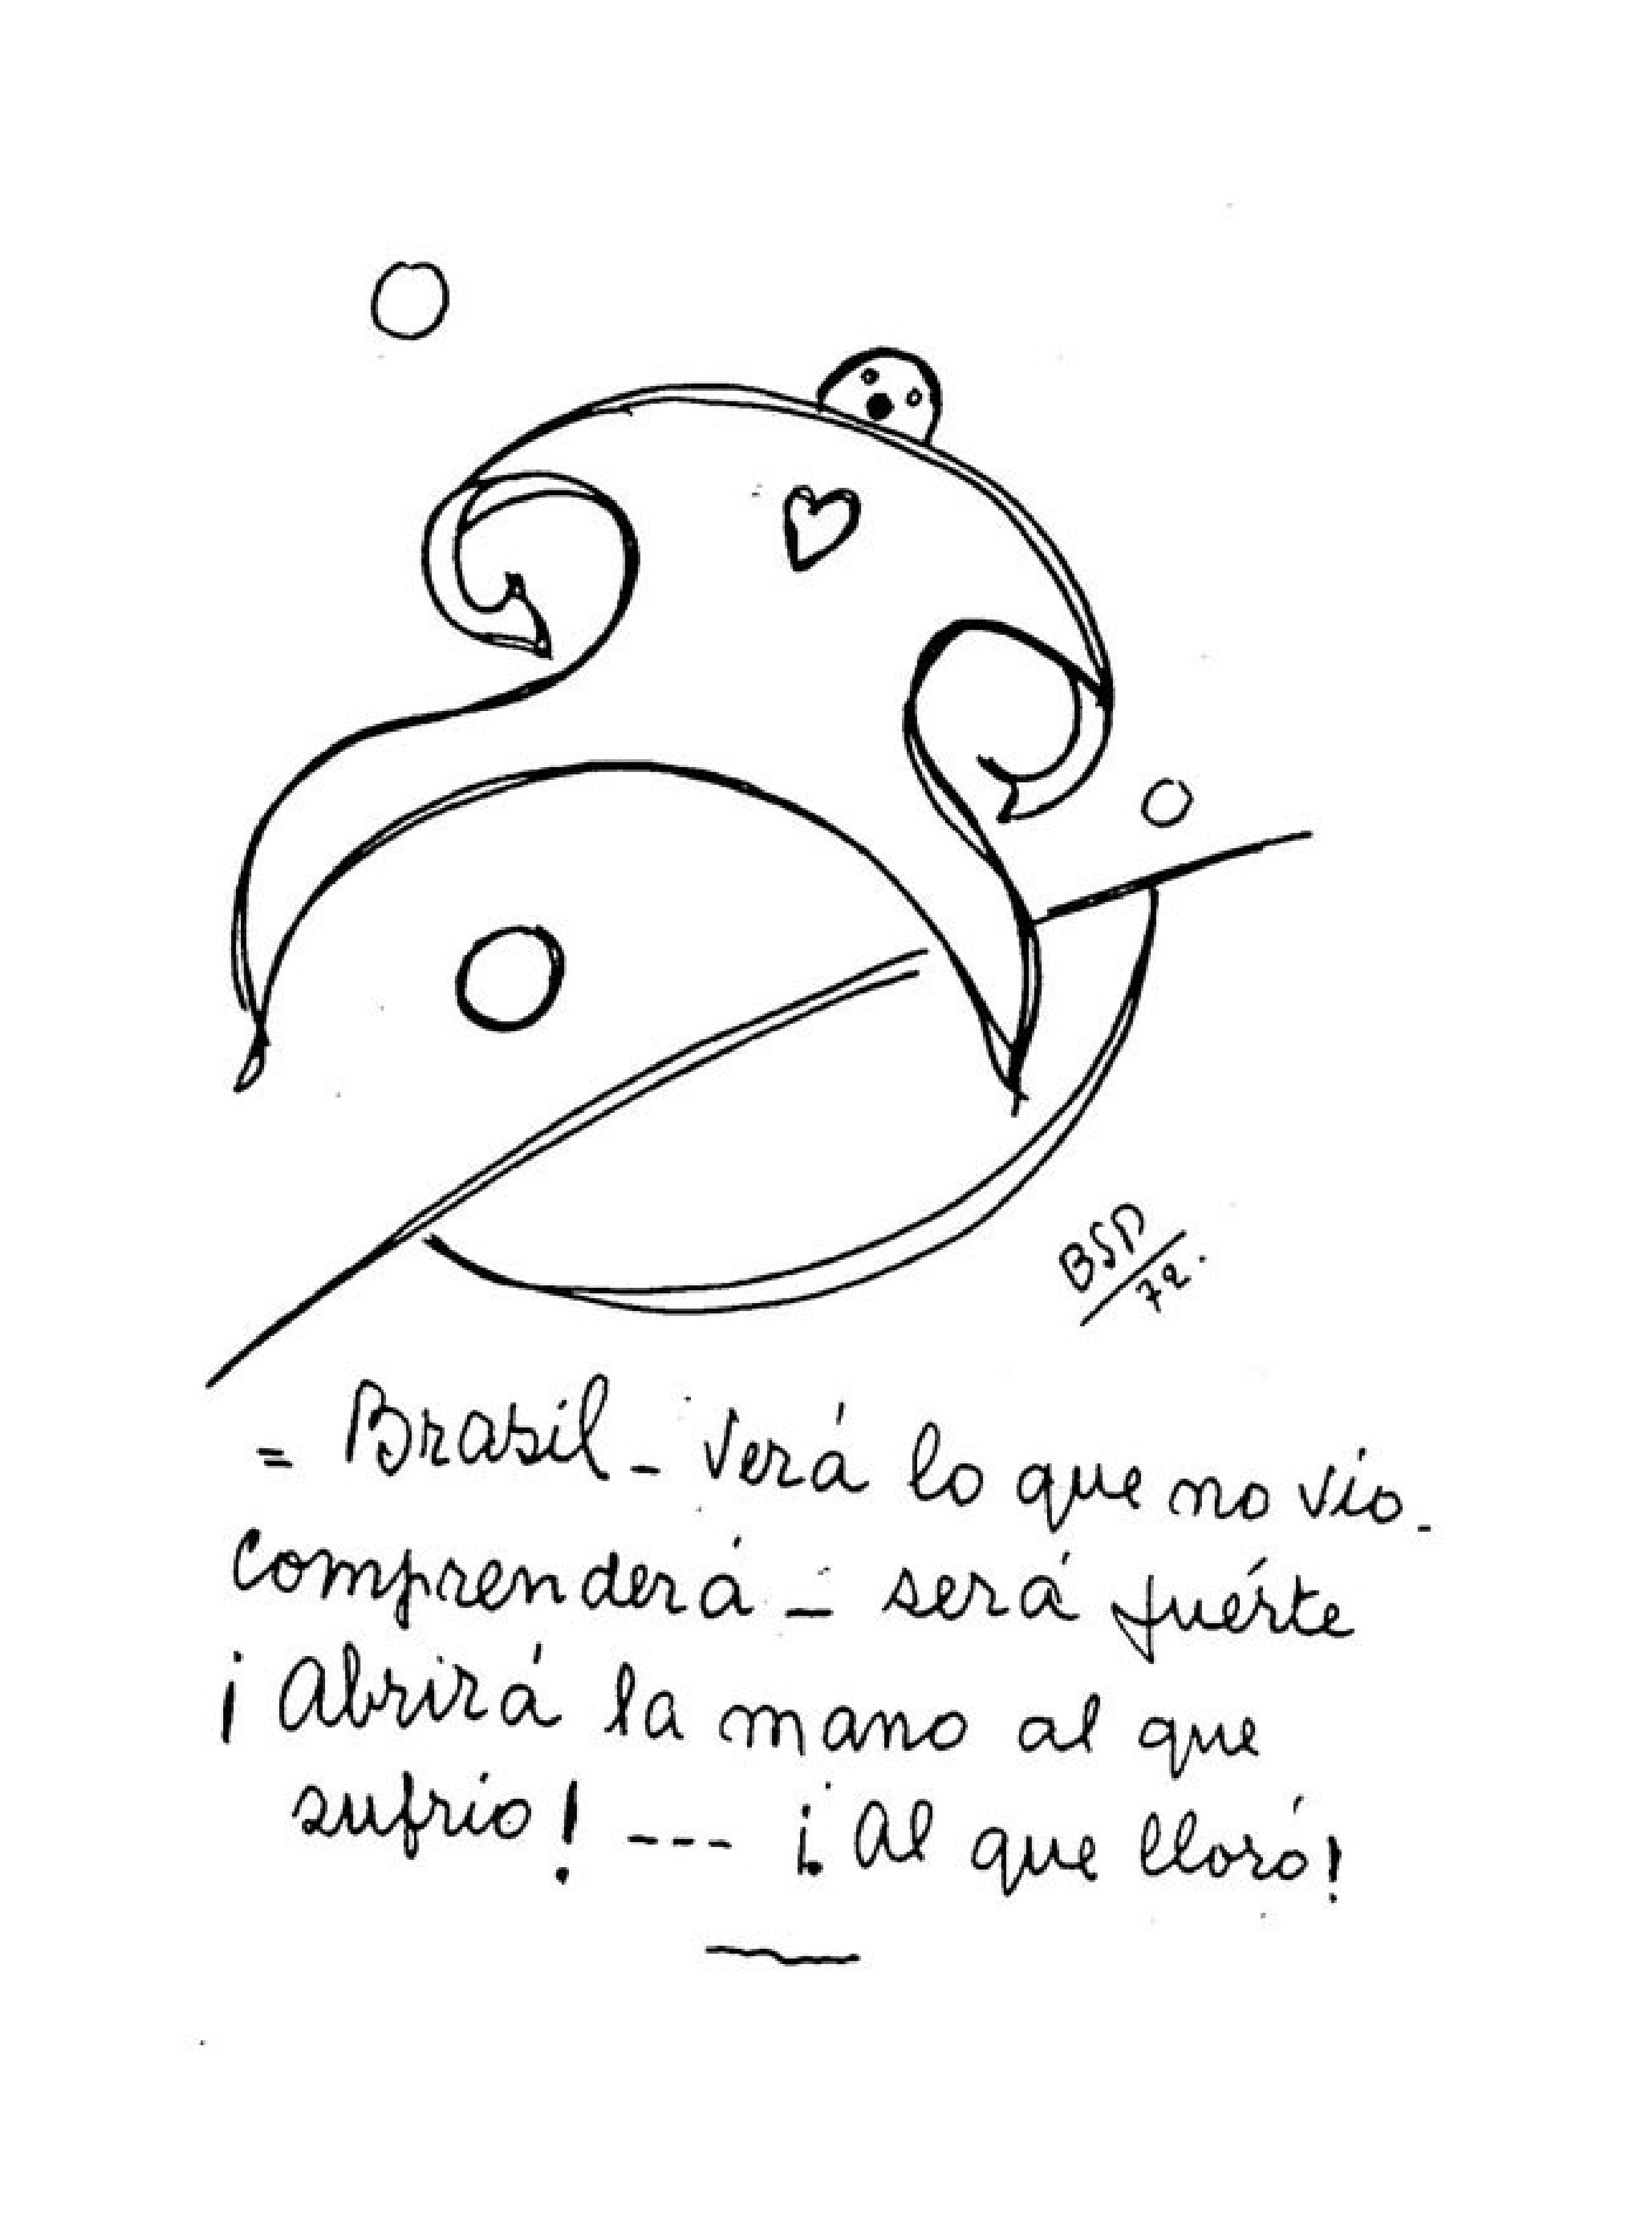 BSP
72.
= Brasil - Verá lo que no vio.
comprenderá - será fuérte
¡Abrirá la mano al que
sufrio! --- ¡Al que lloró!